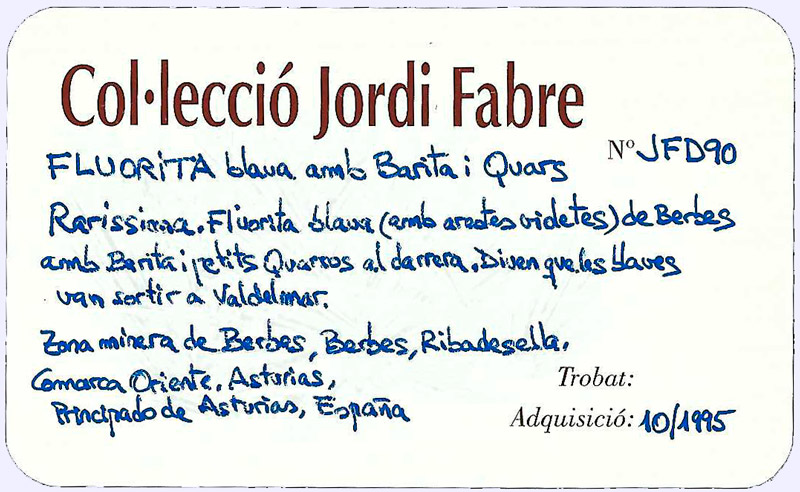 Col·lecció Jordi Fabre
Nº JFD90
FLUORITA blava amb Barita i Quars
Raríssima. Fluorita blava (amb arestes violetes) de Berbes
amb Barita i petits Quarsos al darrera. Diuen que les blaves
van sortir a Valdelmar.
Zona minera de Berbes, Berbes, Ribadesella.
Comarca Oriente, Asturias,
Principado de Asturias, España
Trobat:
Adquisició: 10/1995